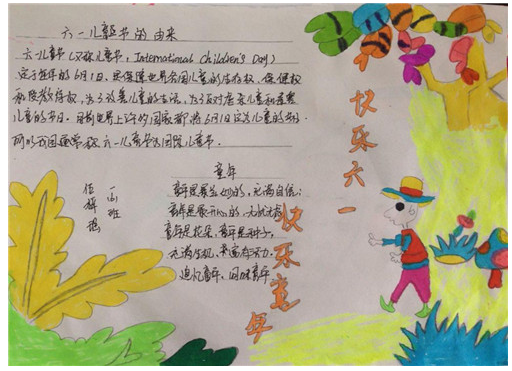 六一儿童节的由来
六一儿童节(又称儿童节, International Children's Day)
定于每年的6月1日。为保障世界各国儿童的生存权、保健权
和受教育权,为了改善儿童的生活,为了反对虐杀儿童和毒害
儿童的节日。目前世界上许多国家都将6月1日定为儿童的节日。
所以我国通常称六一儿童节为国际儿童节。
童年
童年是
充满自信;
童年是
童年是花朵,童年是种子,
充满生机,
追忆童年、回味童年
一
班
快乐六一
快乐童年